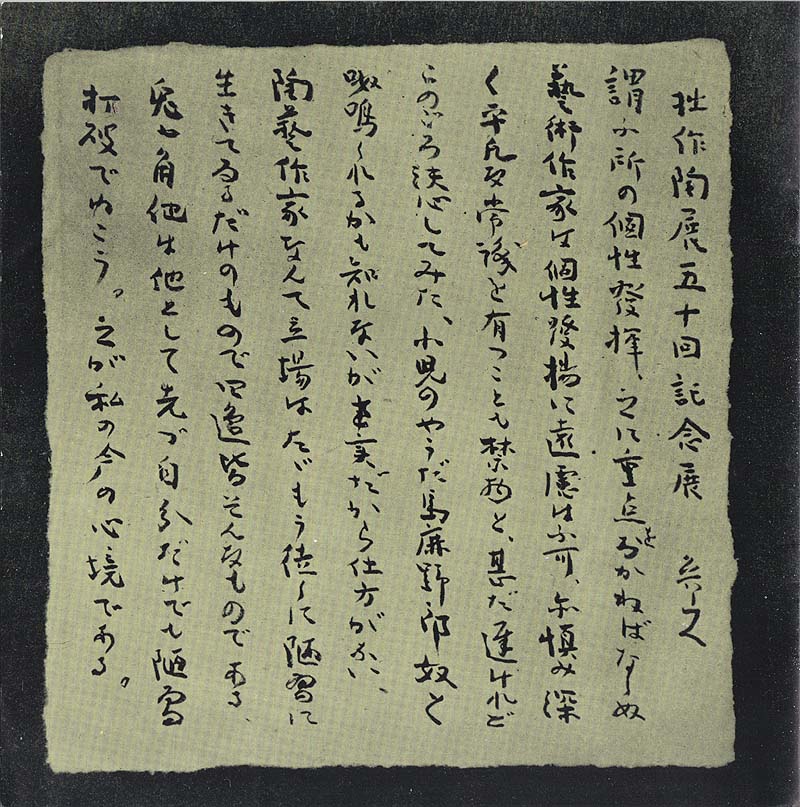 拙作陶展五十回記念展
謂ふ所の個性発揮、之に重点をおかねばならぬ
藝術作家は個性発揚に遠慮は不可、尓慎み深
く平凡な常識を有つことも禁物と、甚だ遅けれど
このごろ決心してみた、小児のやうだ馬鹿野郎奴と
嗚くれるかも知れないが事実だから仕方がない、
陶藝作家なんて立場はたゞもう徒らに陋習に
生きてゐるだけのもので四邊皆そんなものである、
兎も角他は他として先づ自分だけでも陋習
打破でゆこう。之が私の今の心境である。